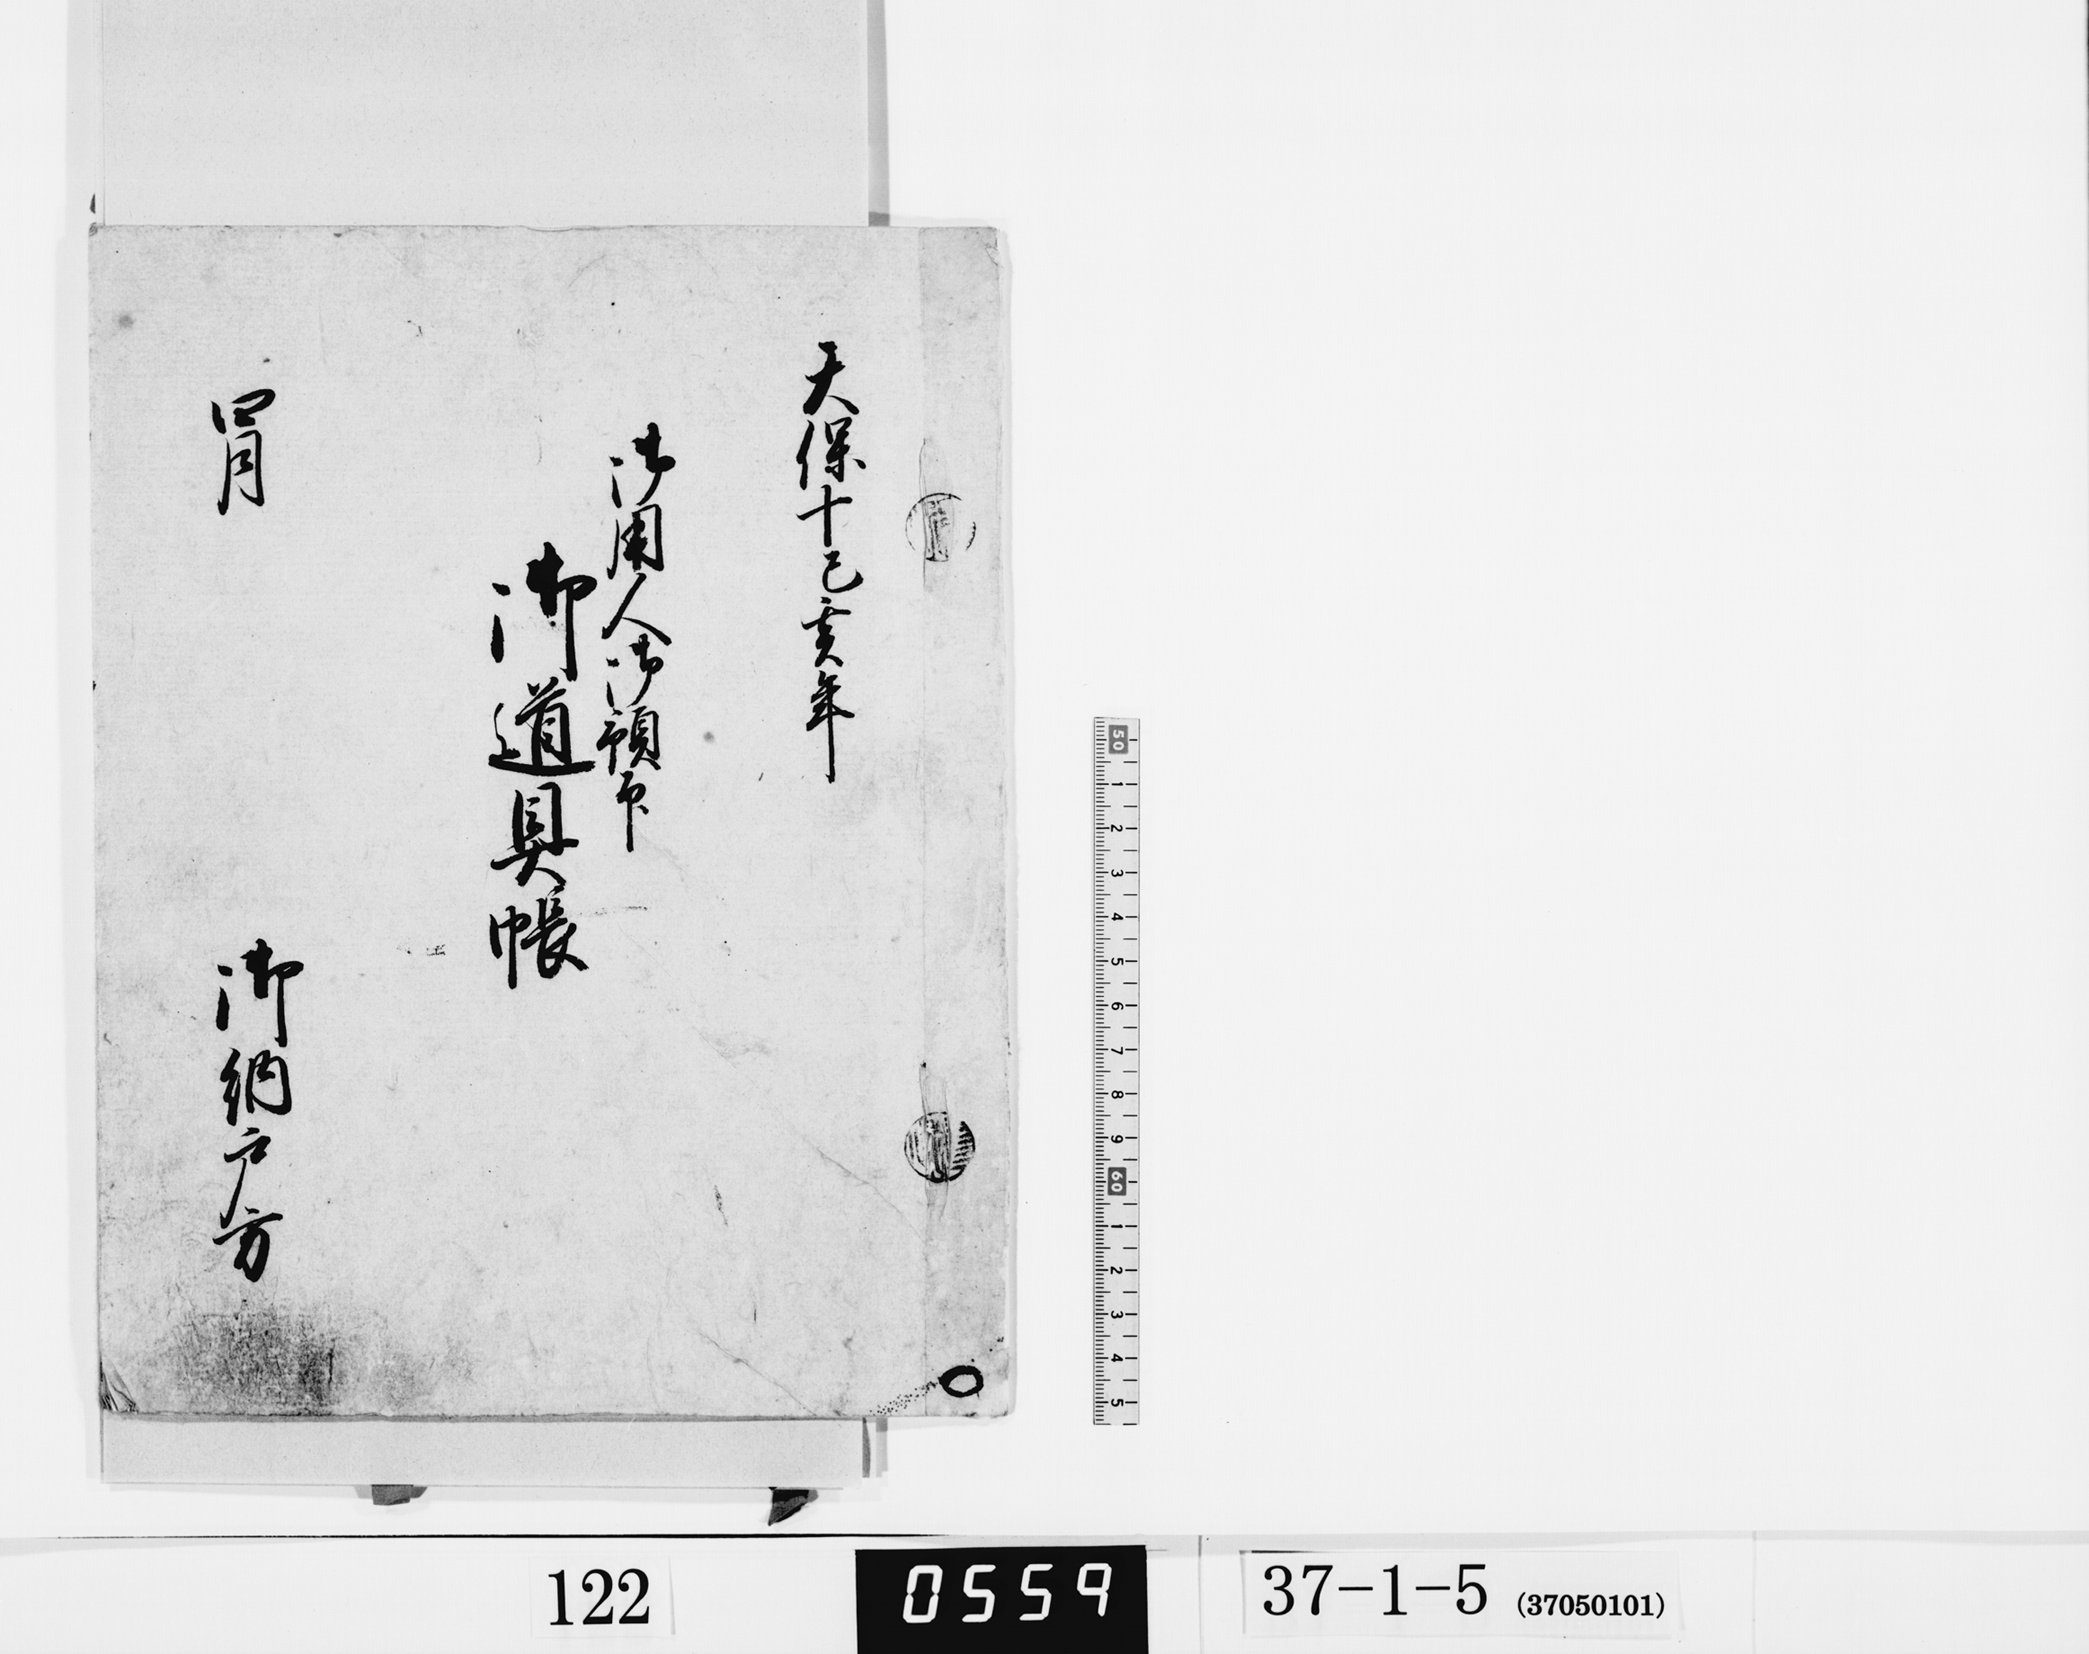 天保十己亥年
御用人御預印
御道具帳
四月
御納戸方
50 1 2 3 4 5 6 7 8 9 60 1 2 3 4 5
122
0559
37-1-5 (37050101)